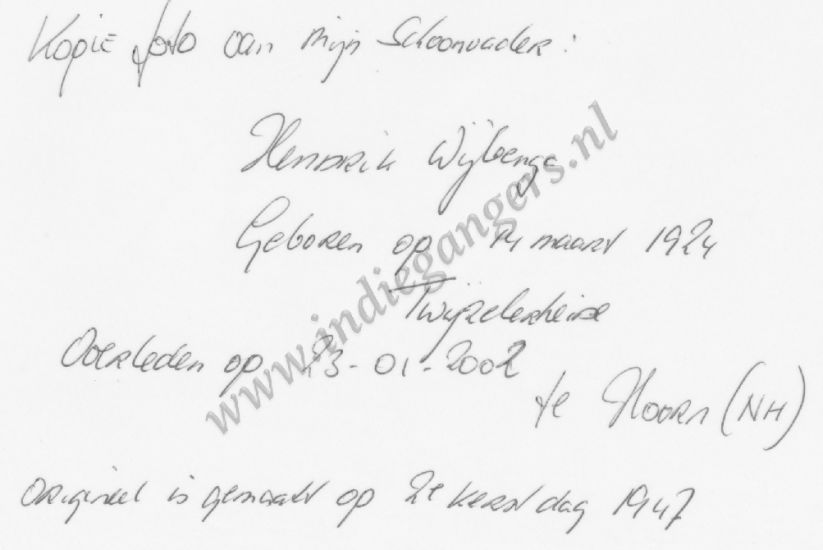 Kopie foto van mijn Schoonvader:
Hendrik Wijbenga
Geboren op 14 maart 1924
Twijzelerheide
Overleden op 23-01-2002
te Hoorn (NH)
Origineel is gemaakt op 2e kerstdag 1947
www.indiegangers.nl